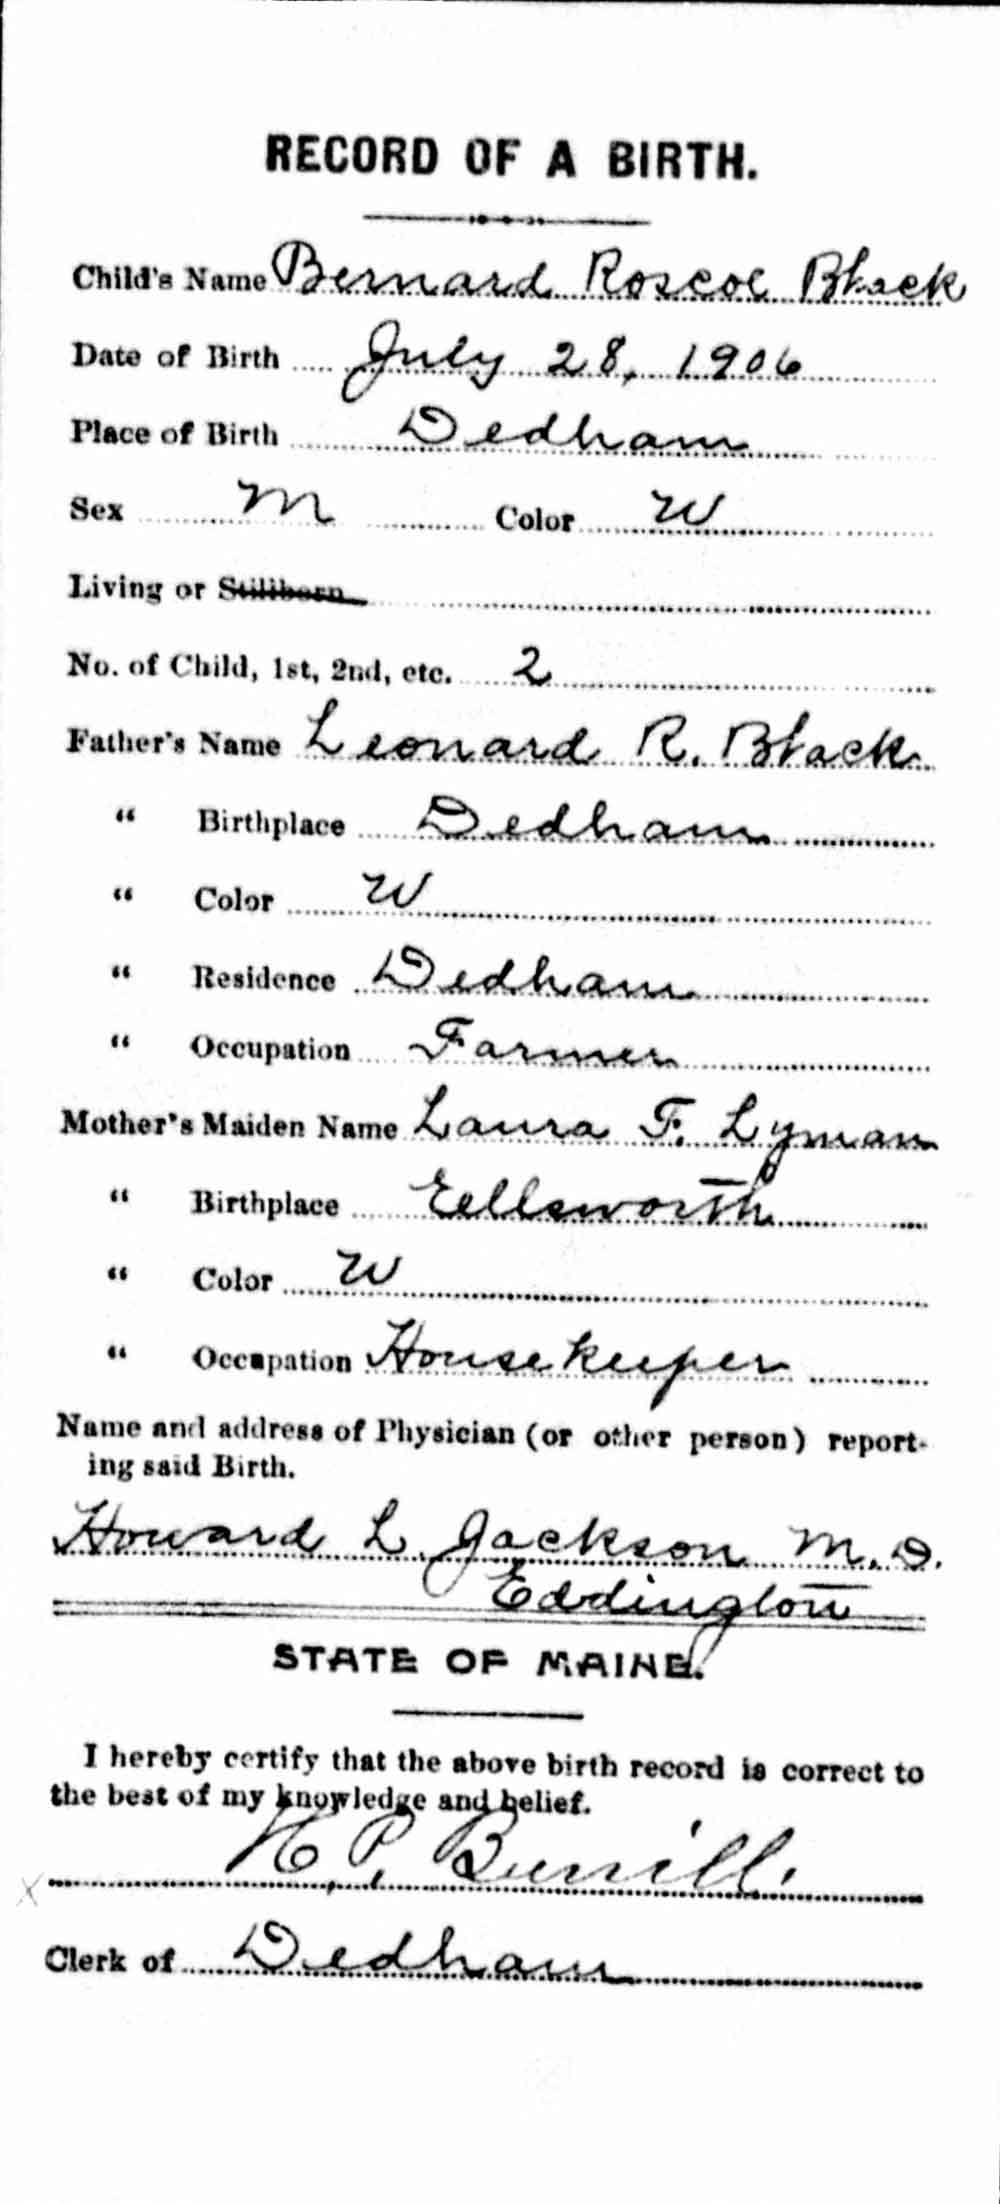 RECORD OF A BIRTH.
Child's Name Bernard Roscoe Black
Date of Birth July 28, 1906
Place of Birth Dedham
Sex M Color W
Living or Stillborn
No. of Child, 1st, 2nd, etc. 2
Father's Name Leonard R. Black
" Birthplace Dedham
" Color W
" Residence Dedham
" Occupation Farmer
Mother's Maiden Name Laura F. Lyman
" Birthplace Ellsworth
" Color W
" Occupation Housekeeper
Name and address of Physician (or other person) report-
ing said Birth.
Howard L. Jackson M.D.
Eddington
STATE OF MAINE.
I hereby certify that the above birth record is correct to
the best of my knowledge and belief.
H. P. Burrill.
X
Clerk of Dedham